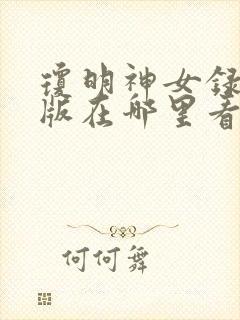 瓊明神女録
版在哪里看
何何舞